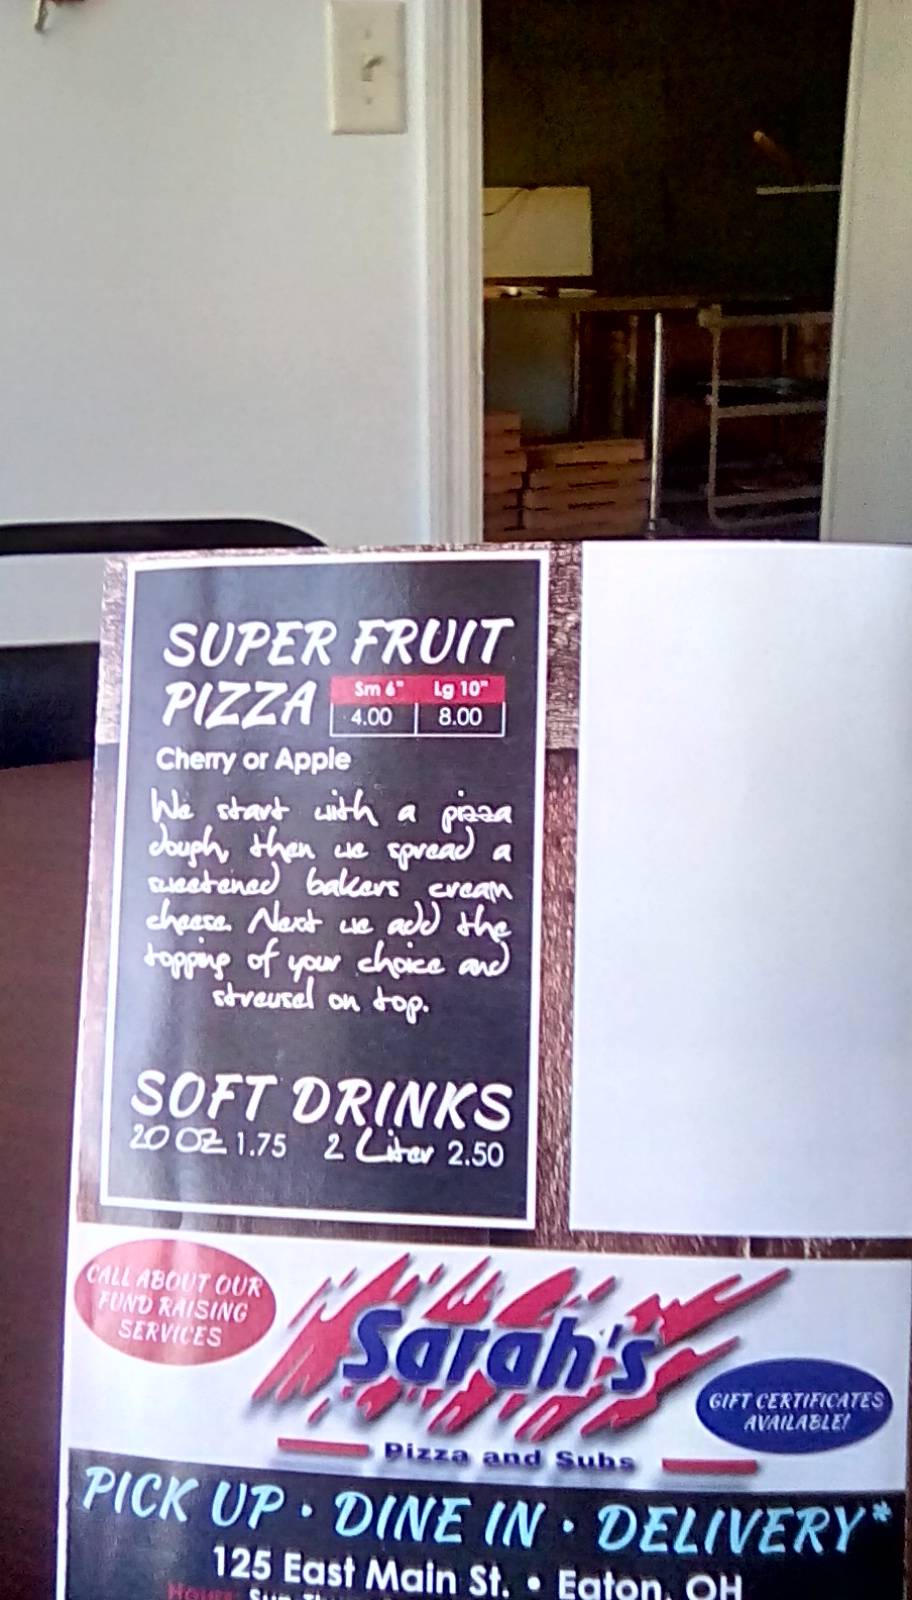 SUPER FRUIT
PIZZA
Sm 6" Lg 10"
4.00 8.00
Cherry or Apple
We start with a pizza
dough, then we spread a
sweetened bakers cream
cheese. Next we add the
topping of your choice and
streusel on top.
SOFT DRINKS
20 OZ 1.75 2 Liter 2.50
CALL ABOUT OUR
FUND RAISING
SERVICES
Sarah's
Pizza and Subs
GIFT CERTIFICATES
AVAILABLE!
PICK UP • DINE IN • DELIVERY*
125 East Main St. • Eaton, OH